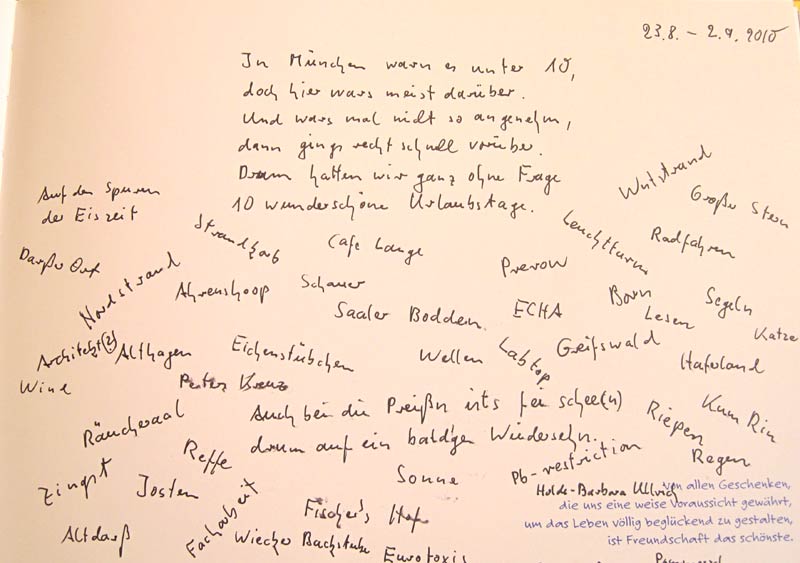 23.8. – 2.9. 2010
In München warn es unter 10,
doch hier wars meist darüber.
Und wars mal nicht so angenehm,
dann gings recht schnell vorüber.
Drum hatten wir ganz ohne Frage
10 wunderschöne Urlaubstage.
Auf den Spuren
der Eiszeit
Strandhab
Cafe Lange
Leuchtturm
Großer Stern
Radfahren
Darßer Ort
Nordstrand
Ahrenshoop
Schauer
Prerow
Born
Segeln
Saaler Bodden
ECHA
Lesen
Katze
Architekt(2)
Althagen
Eichenstübchen
Wellen
Labtop
Greifswald
Hafenland
Wind
Peter Kreuz
Räucheraal
Auch bei die Preißn ists fei schee(n)
drum auf ein bald'gen Wiedersehn.
Riepen
Kum Rin
Regen
Reffe
Zingst
Josten
Sonne
Pb-restriction
Holde-Barbara Ullrich
Facharbeit
Fischer's Hof
Altdarß
Wiecker Backstube
Eurotoxis
von allen Geschenken,
die uns eine weise Voraussicht gewährt,
um das Leben völlig beglückend zu gestalten,
ist Freundschaft das schönste.